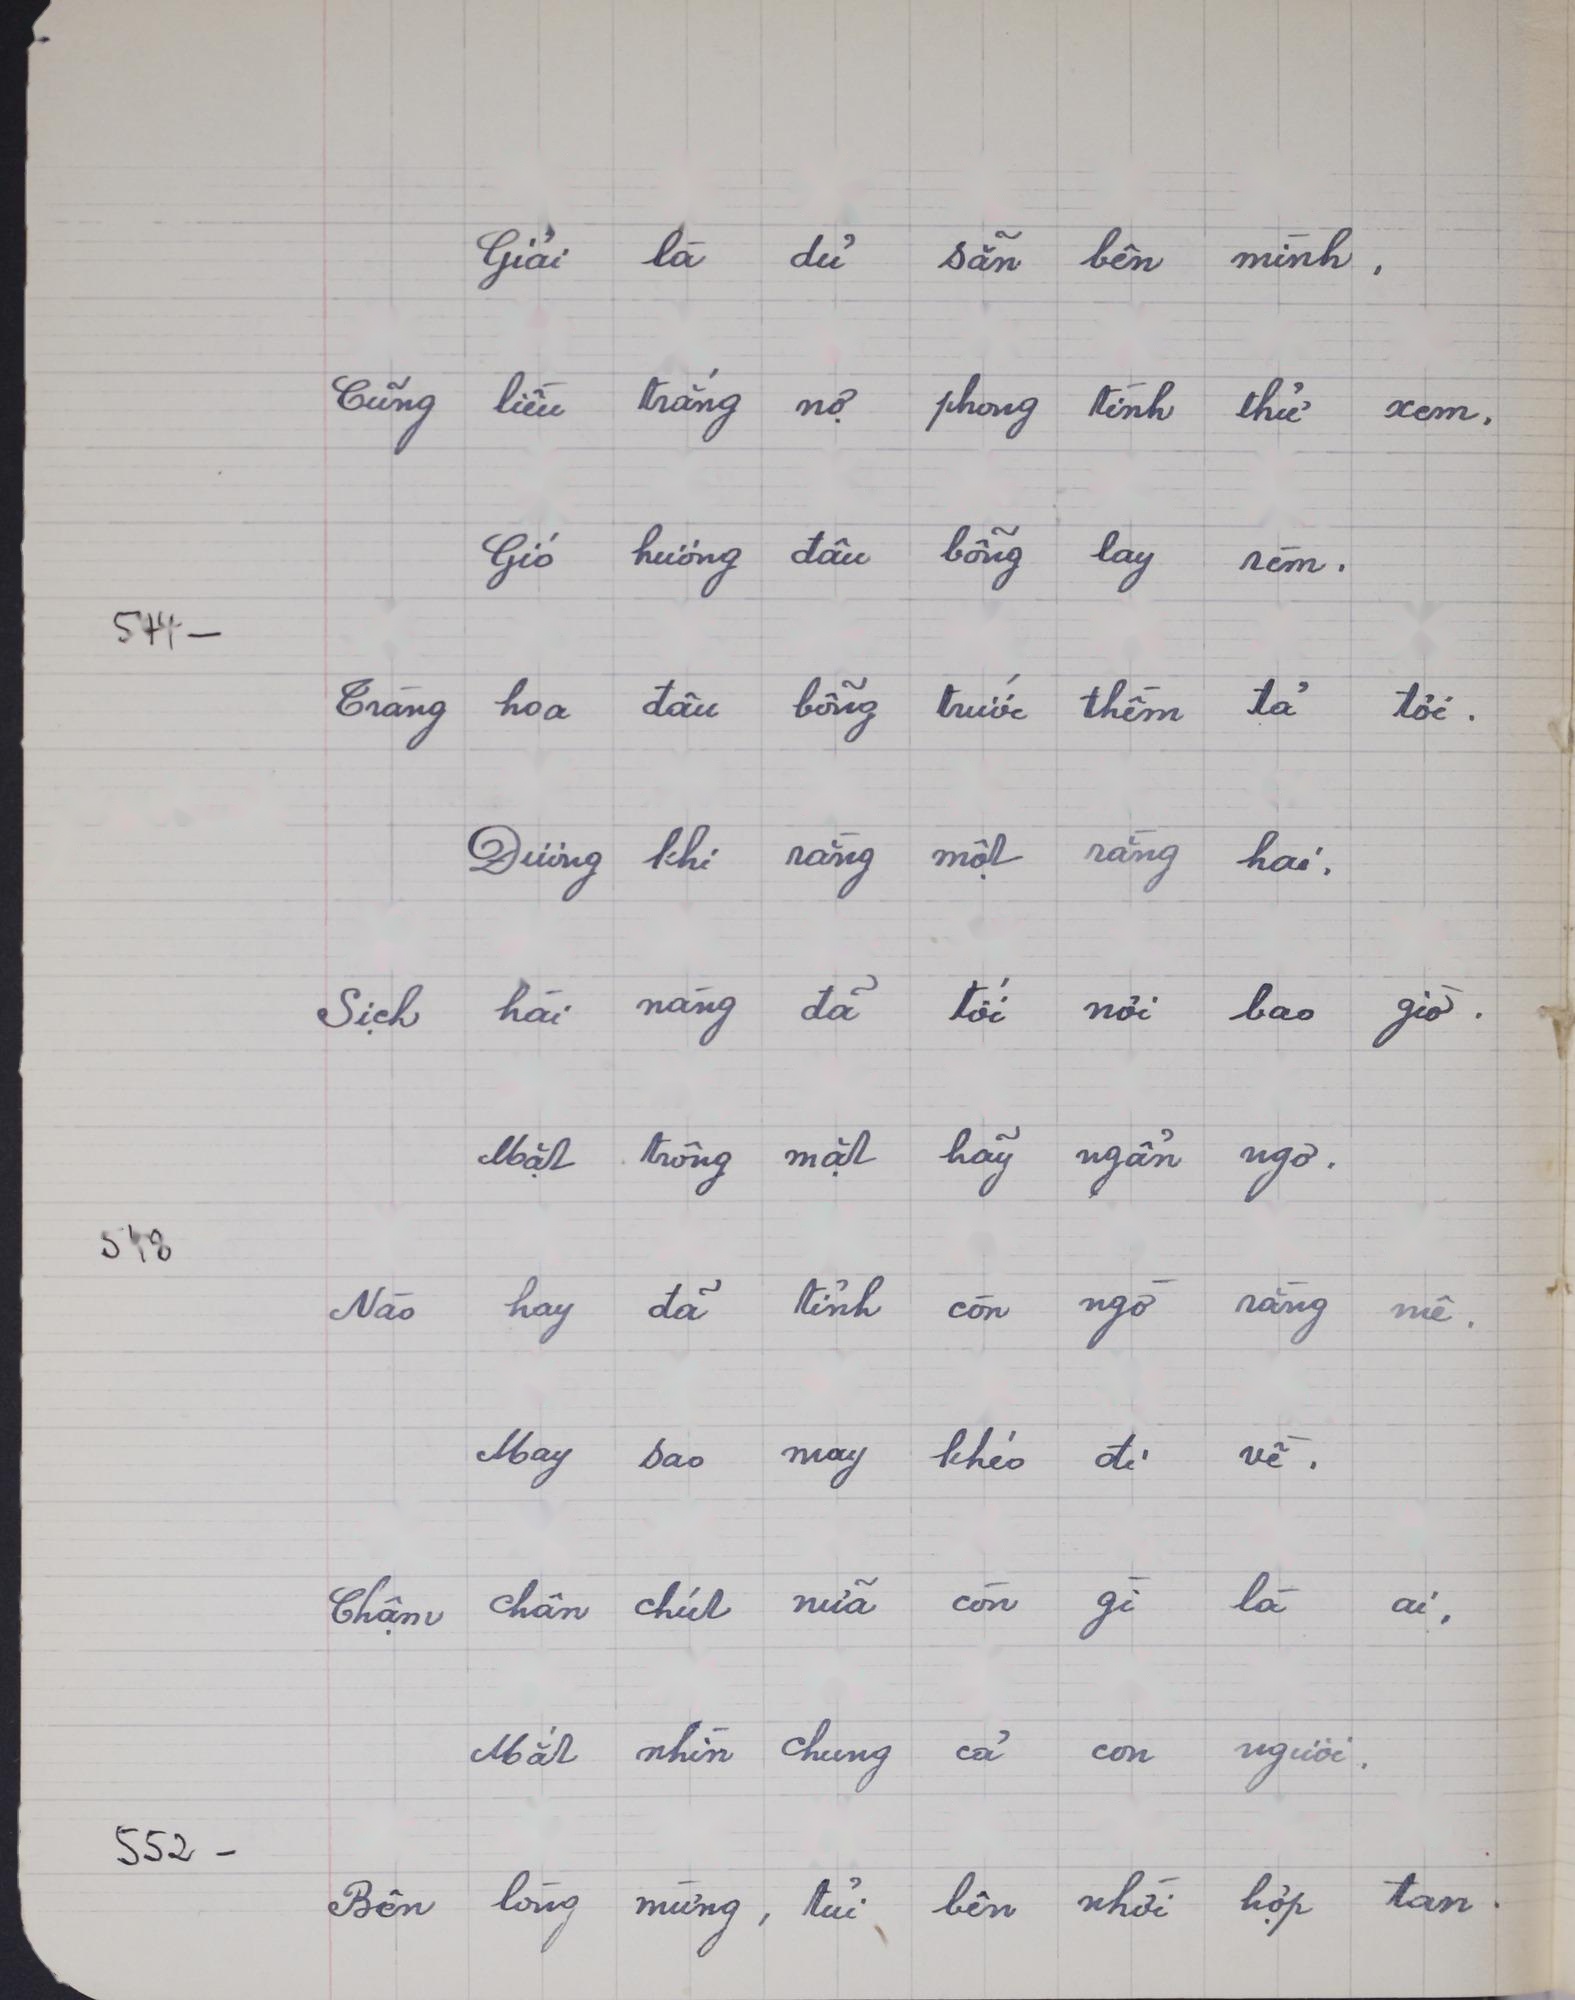 Giải là dử sẵn bên mình,
Cũng liều trăng nợ phong tình thử xem.
Gió hương đâu bỗng lay rèm.
544 –
Trăng hoa đâu bỗng trước thềm tả tơi.
Đương khi rằng một rằng hai,
Sịch hài nàng đã tới nơi bao giờ.
Mặt trông mặt hãy ngẩn ngơ.
548
Nào hay đã tỉnh còn ngờ rằng mê.
May sao may khéo đi về.
Chậm chân chút nữa còn gì là ai,
Mắt nhìn chung cả con người.
552 –
Bên lòng mừng, tủi bên nhời hợp tan.